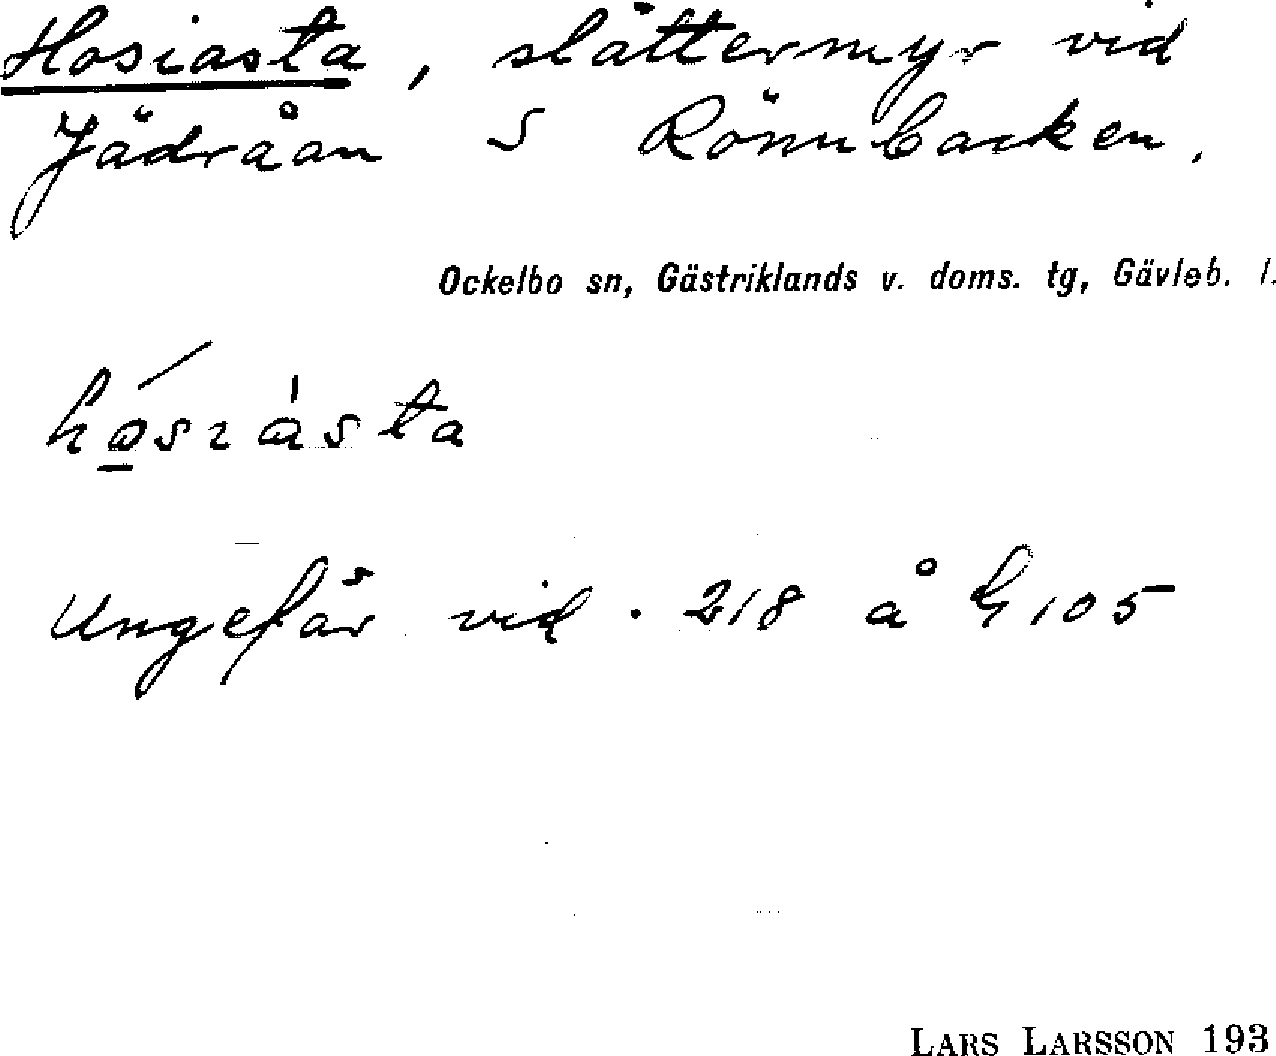 Hosiasta, slåttermyr vid
Jädraån S Rönnbacken.
Ockelbo sn, Gästriklands v. doms. tg, Gävleb. l.
Ungefär vid · 218 å G 105
LARS LARSSON 193